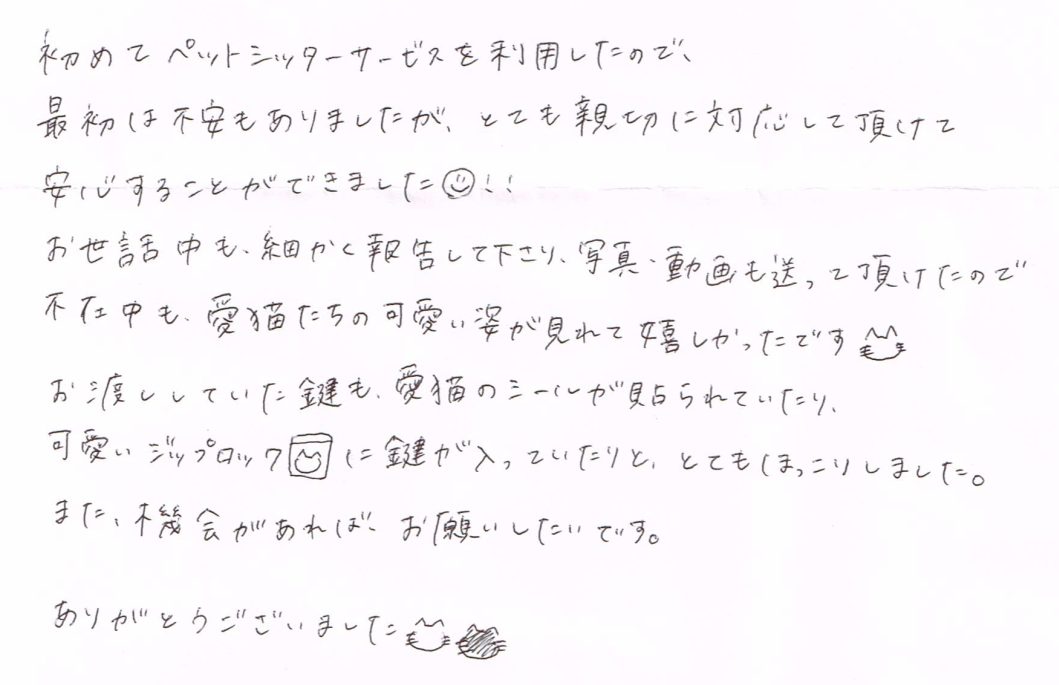 初めてペットシッターサービスを利用したので、
最初は不安もありましたが、とても親切に対応して頂けて
安心することができました!!
お世話中も、細かく報告して下さり、写真・動画も送って頂けたので
不在中も、愛猫たちの可愛い姿が見れて嬉しかったです
お渡ししていた鍵も、愛猫のシールが貼られていたり、
可愛いジップロックに鍵が入っていたりと、とてもほっこりしました。
また、機会があれば、お願いしたいです。
ありがとうございました